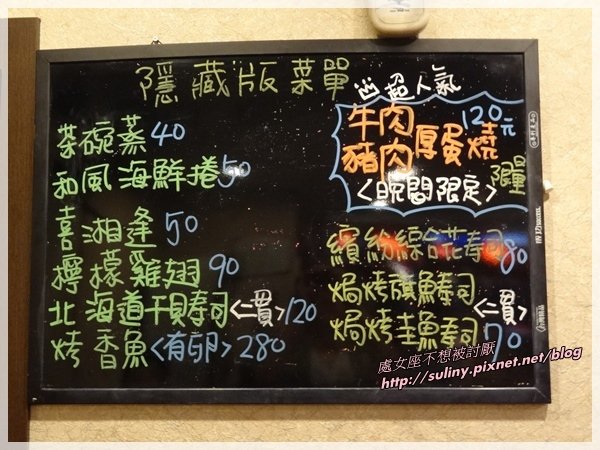 隱藏版菜單
茶碗蒸40
和風海鮮捲50
喜湘逢 50
檸檬雞翅 90
北海道干貝壽司<二貫>120
烤香魚<有卵>280
超人氣
牛肉
豬肉
厚蛋燒
120元
限量
<晚間限定>
繽紛綜合花壽司80
焗烤旗魚壽司
<二貫>
焗烤鮭魚壽司 70
處女座不想被討厭
http://suliny.pixnet.net/blog